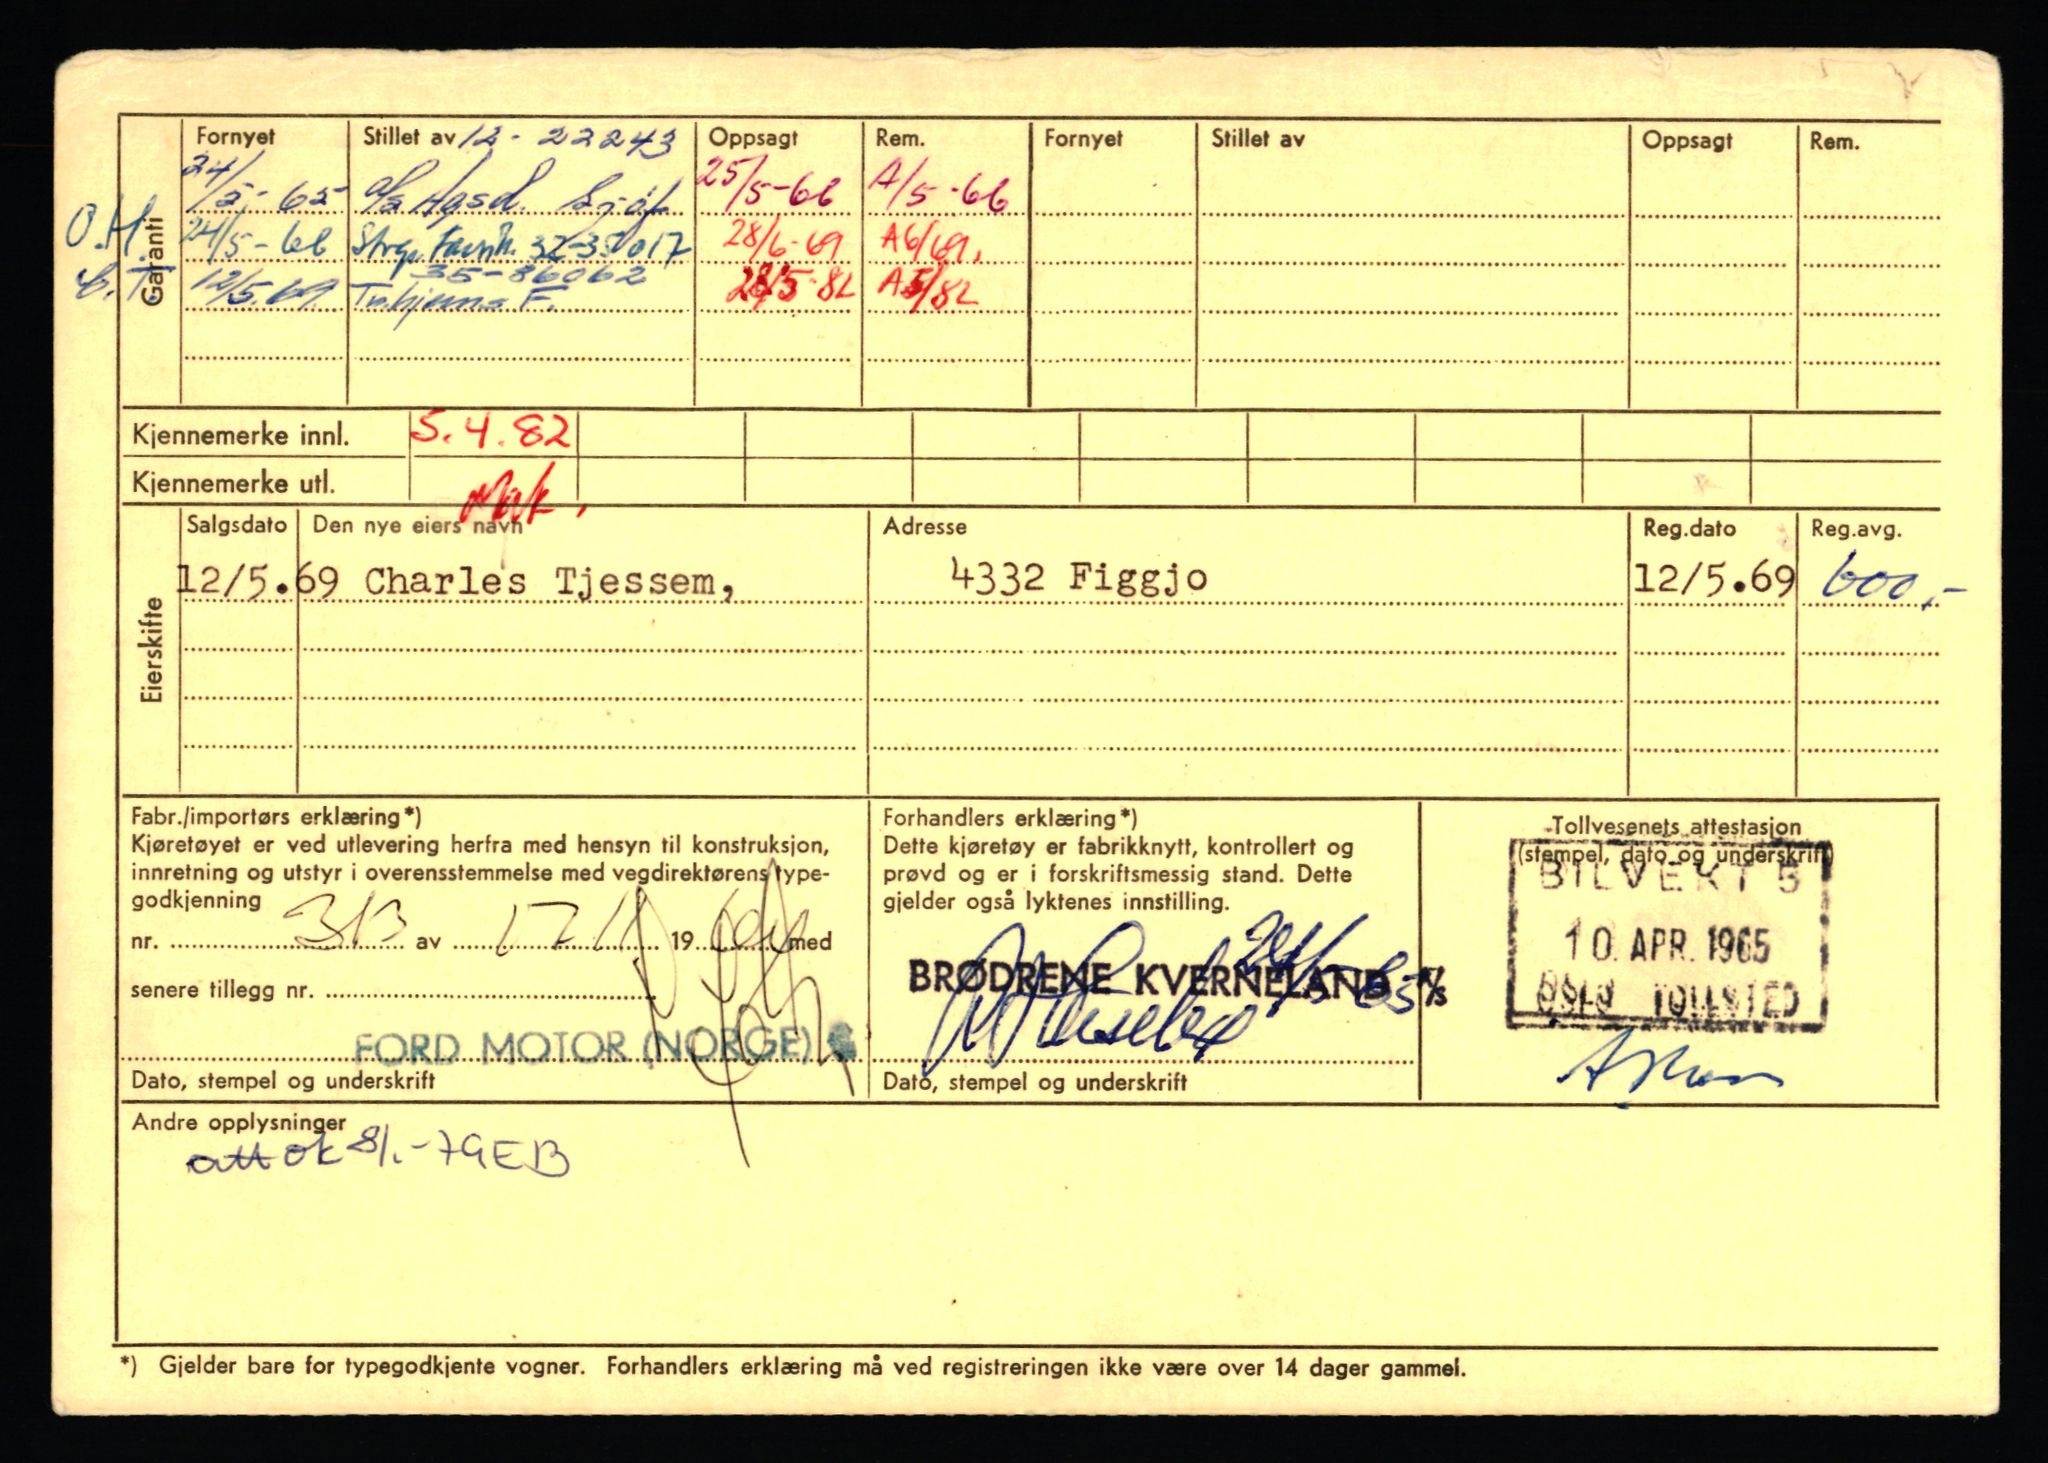 Fornyet Stillet av 12-22243 Oppsagt Rem. Fornyet Stillet av Oppsagt Rem.
24/5-65 a/s Agsd. Sjøf. 25/5-66 A/5-66
O.H. 24/5-66 Strgr. Favnk. 32-35017 28/6-69 A6/69.
35-86062
C.T. 12/5.69. Tr.hjems F. 28/5-82 A5/82
Garanti
Kjennemerke innl. 5.4.82
Kjennemerke utl.
Salgsdato Den nye eiers navn Adresse Reg.dato Reg.avg.
12/5.69 Charles Tjessem, 4332 Figgjo 12/5.69 600,-
Eierskifte
Fabr./importørs erklæring*)
Kjøretøyet er ved utlevering herfra med hensyn til konstruksjon,
innretning og utstyr i overensstemmelse med vegdirektørens type-
godkjenning
nr. 313 av 17/11 19 64 med
senere tillegg nr.
FORD MOTOR (NORGE)
Dato, stempel og underskrift
Forhandlers erklæring*)
Dette kjøretøy er fabrikknytt, kontrollert og
prøvd og er i forskriftsmessig stand. Dette
gjelder også lyktenes innstilling.
24/5-65
BRØDRENE KVERNELAND A/S
Dato, stempel og underskrift
Tollvesenets attestasjon
(stempel, dato og underskrift)
BILVERT 5
10. APR. 1965
OSLO TOLLSTED
Andre opplysninger
att ok 8/1.-79 EB
*) Gjelder bare for typegodkjente vogner. Forhandlers erklæring må ved registreringen ikke være over 14 dager gammel.